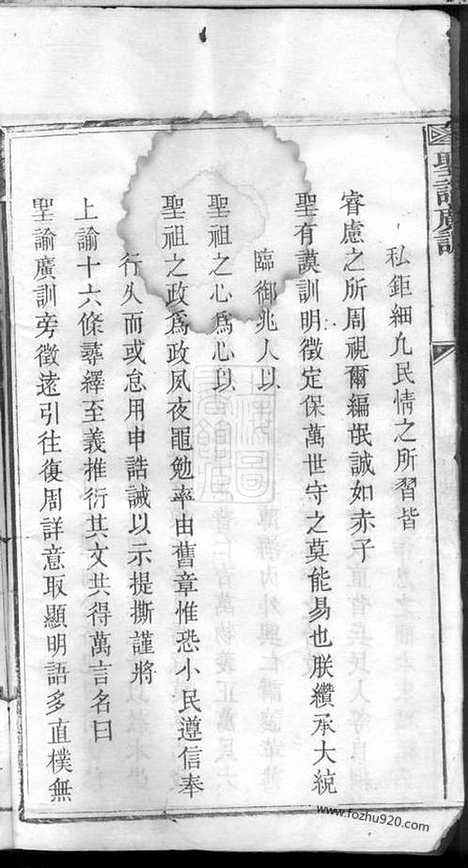 聖諭廣訓
私鉅細凢民情之所習皆
睿慮之所周視爾編氓誠如赤子
聖有謨訓明徵定保萬世守之莫能易也朕纘承大統
臨御兆人以
聖祖之心爲心以
聖祖之政爲政夙夜黽勉率由舊章惟恐小民遵信奉
行久而或怠用申誥誡以示提撕謹將
上諭十六條尋繹至義推衍其文共得萬言名曰
聖諭廣訓旁徵遠引往復周詳意取顯明語多直樸無
www.fozhu920.com